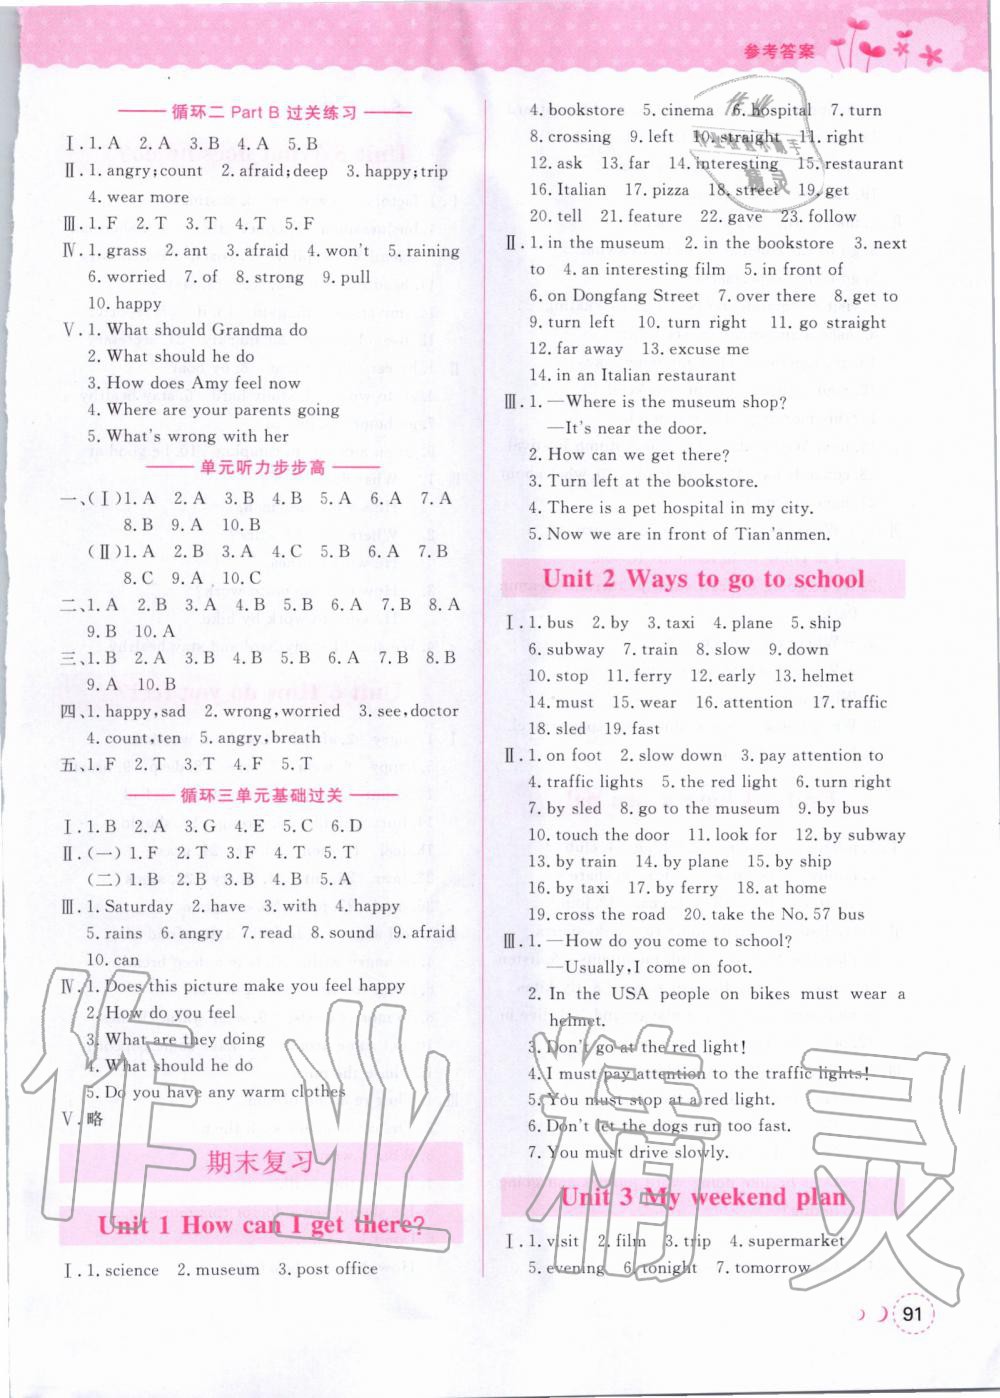 参考答案
循环二 Part B 过关练习
Ⅰ. 1. A 2. A 3. B 4. A 5. B
Ⅱ. 1. angry;count 2. afraid;deep 3. happy;trip
4. wear more
Ⅲ. 1. F 2. T 3. T 4. T 5. F
Ⅳ. 1. grass 2. ant 3. afraid 4. won't 5. raining
6. worried 7. of 8. strong 9. pull
10. happy
Ⅴ. 1. What should Grandma do
2. What should he do
3. How does Amy feel now
4. Where are your parents going
5. What's wrong with her
单元听力步步高
一、(Ⅰ)1. A 2. A 3. B 4. B 5. A 6. A 7. A
8. B 9. A 10. B
(Ⅱ)1. A 2. B 3. A 4. C 5. B 6. A 7. B
8. C 9. A 10. C
二、1. A 2. B 3. A 4. B 5. B 6. A 7. B 8. A
9. B 10. A
三、1. B 2. A 3. B 4. B 5. B 6. A 7. B 8. B
9. A 10. B
四、1. happy,sad 2. wrong,worried 3. see,doctor
4. count,ten 5. angry,breath
五、1. F 2. T 3. T 4. F 5. T
循环三单元基础过关
Ⅰ. 1. B 2. A 3. G 4. E 5. C 6. D
Ⅱ. (一) 1. F 2. T 3. F 4. T 5. T
(二) 1. B 2. B 3. B 4. B 5. A
Ⅲ. 1. Saturday 2. have 3. with 4. happy
5. rains 6. angry 7. read 8. sound 9. afraid
10. can
Ⅳ. 1. Does this picture make you feel happy
2. How do you feel
3. What are they doing
4. What should he do
5. Do you have any warm clothes
Ⅴ. 略
期末复习
Unit 1 How can I get there?
Ⅰ. 1. science 2. museum 3. post office
4. bookstore 5. cinema 6. hospital 7. turn
8. crossing 9. left 10. straight 11. right
12. ask 13. far 14. interesting 15. restaurant
16. Italian 17. pizza 18. street 19. get
20. tell 21. feature 22. gave 23. follow
Ⅱ. 1. in the museum 2. in the bookstore 3. next
to 4. an interesting film 5. in front of
6. on Dongfang Street 7. over there 8. get to
9. turn left 10. turn right 11. go straight
12. far away 13. excuse me
14. in an Italian restaurant
Ⅲ. 1. —Where is the museum shop?
—It's near the door.
2. How can we get there?
3. Turn left at the bookstore.
4. There is a pet hospital in my city.
5. Now we are in front of Tian'anmen.
Unit 2 Ways to go to school
Ⅰ. 1. bus 2. by 3. taxi 4. plane 5. ship
6. subway 7. train 8. slow 9. down
10. stop 11. ferry 12. early 13. helmet
14. must 15. wear 16. attention 17. traffic
18. sled 19. fast
Ⅱ. 1. on foot 2. slow down 3. pay attention to
4. traffic lights 5. the red light 6. turn right
7. by sled 8. go to the museum 9. by bus
10. touch the door 11. look for 12. by subway
13. by train 14. by plane 15. by ship
16. by taxi 17. by ferry 18. at home
19. cross the road 20. take the No. 57 bus
Ⅲ. 1. —How do you come to school?
—Usually,I come on foot.
2. In the USA people on bikes must wear a
helmet.
3. Don't go at the red light!
4. I must pay attention to the traffic lights!
5. You must stop at a red light.
6. Don't let the dogs run too fast.
7. You must drive slowly.
Unit 3 My weekend plan
Ⅰ. 1. visit 2. film 3. trip 4. supermarket
5. evening 6. tonight 7. tomorrow
91
作业精灵